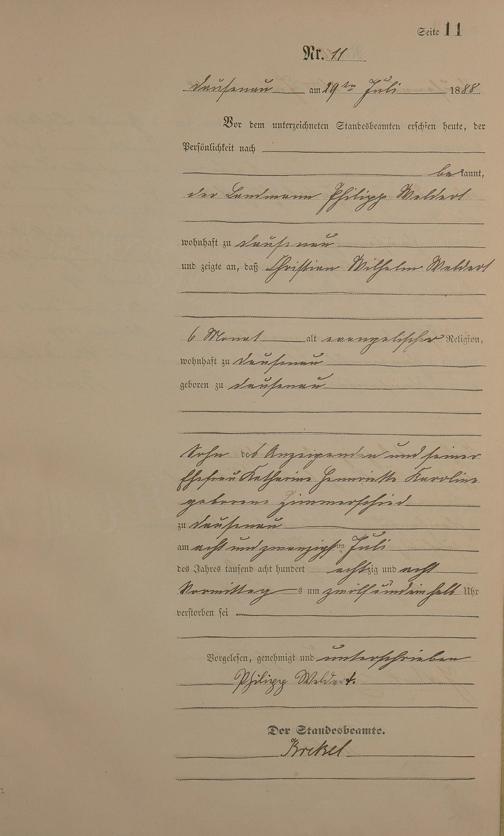 Seite 11
Nr. 11
Dausenau am 29ten Juli 1888
Vor dem unterzeichneten Standesbeamten erschien heute, der
Persönlichkeit nach
bekannt,
der Landmann Philipp Weldert
wohnhaft zu Dausenau
und zeigte an, daß Christian Wilhelm Weldert
6 Monat alt evangelischer Religion,
wohnhaft zu Dausenau
geboren zu Dausenau
Sohn des Anzeigenden und seiner
Ehefrau Katharine Henriette Karoline
geborene Zimmerschied
zu Dausenau
am acht und zwanzigsten Juli
des Jahres tausend acht hundert achtzig und acht
Vormittags um zwölf und ein halb Uhr
verstorben sei
Vorgelesen, genehmigt und unterschrieben
Philipp Weldert.
Der Standesbeamte.